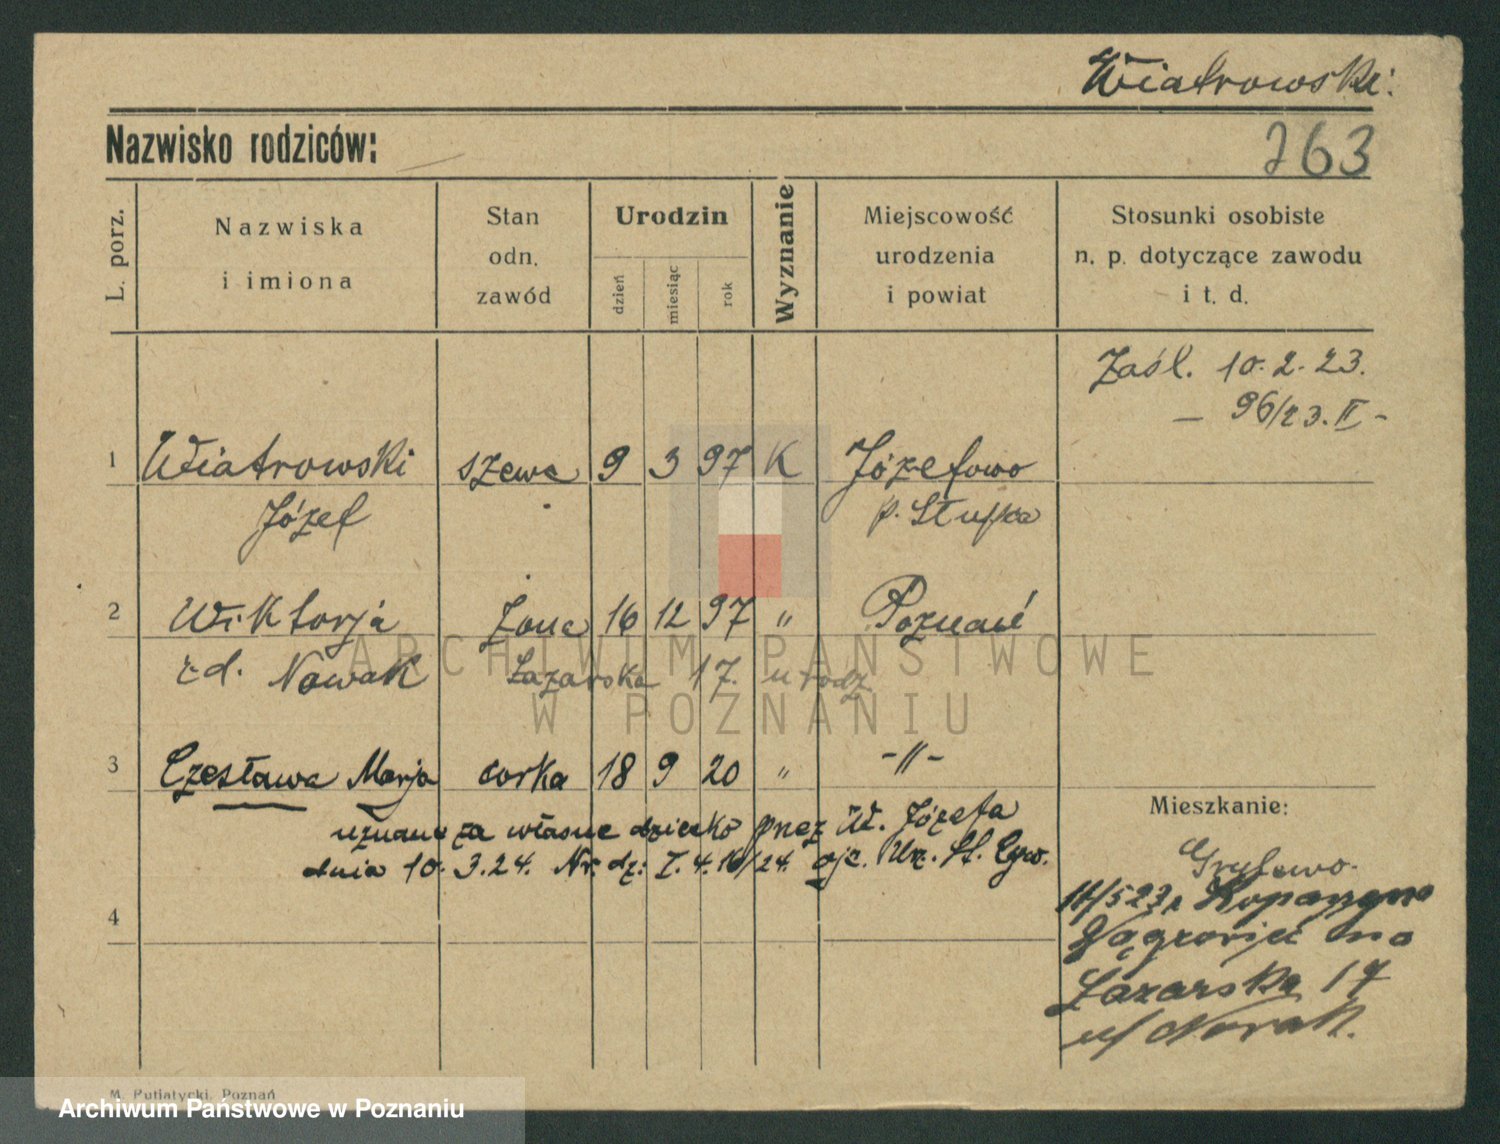 Wiatrowski
Nazwisko rodziców:
263
L. porz.
Nazwiska
i imiona
Stan
odn.
zawód
Urodzin
dzień
miesiąc
rok
Wyznanie
Miejscowość
urodzenia
i powiat
Stosunki osobiste
n. p. dotyczące zawodu
i t. d.
Zaśl. 10.2.23.
— 96/23.II -
1 Wiatrowski szewc 9 3 97 K Józefowo
Józef p. Słupca
2 Wiktorja żona 16 12 97 " Poznań
z d. Nowak Łazarska 17. u rodz
ARCHIWUM PAŃSTWOWE
W POZNANIU
3 Czesława Marja córka 18 9 20 " -"-
uznano za własne dziecko przez W. Józefa
dnia 10.3.24. Nr. dz: I.4.16/24. ojc. Urz. St. Cyw.
4
Mieszkanie:
Wągrowiec
Łazarska 17
u/ Nowak.
M. Putiatycki, Poznań
Archiwum Państwowe w Poznaniu